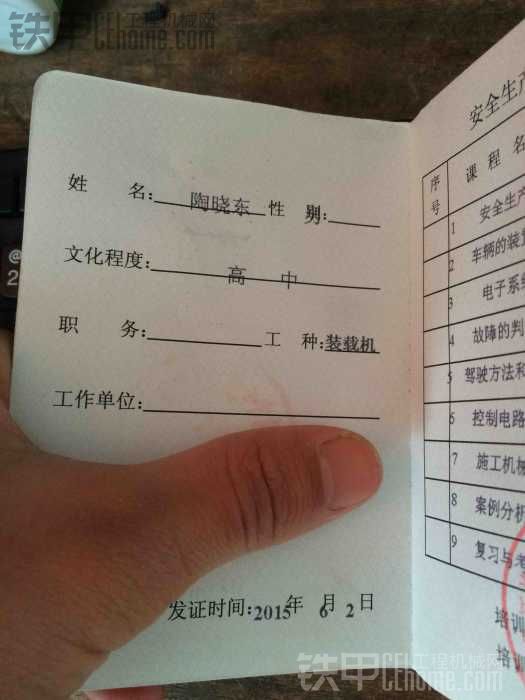 铁甲工程机械网
CEhome.com
姓 名:陶晓东 性 别:
文化程度:高 中
职 务: 工 种:装载机
工作单位:
发证时间:2015年 6月 2日
安全生产
序号 课 程 名
1 安全生产
2 车辆的装置
3 电子系统
4 故障的判
5 驾驶方法和
6 控制电路
7 施工机械
8 案例分析
9 复习与考
培训
培训
铁甲工程机械网
CEhome.com